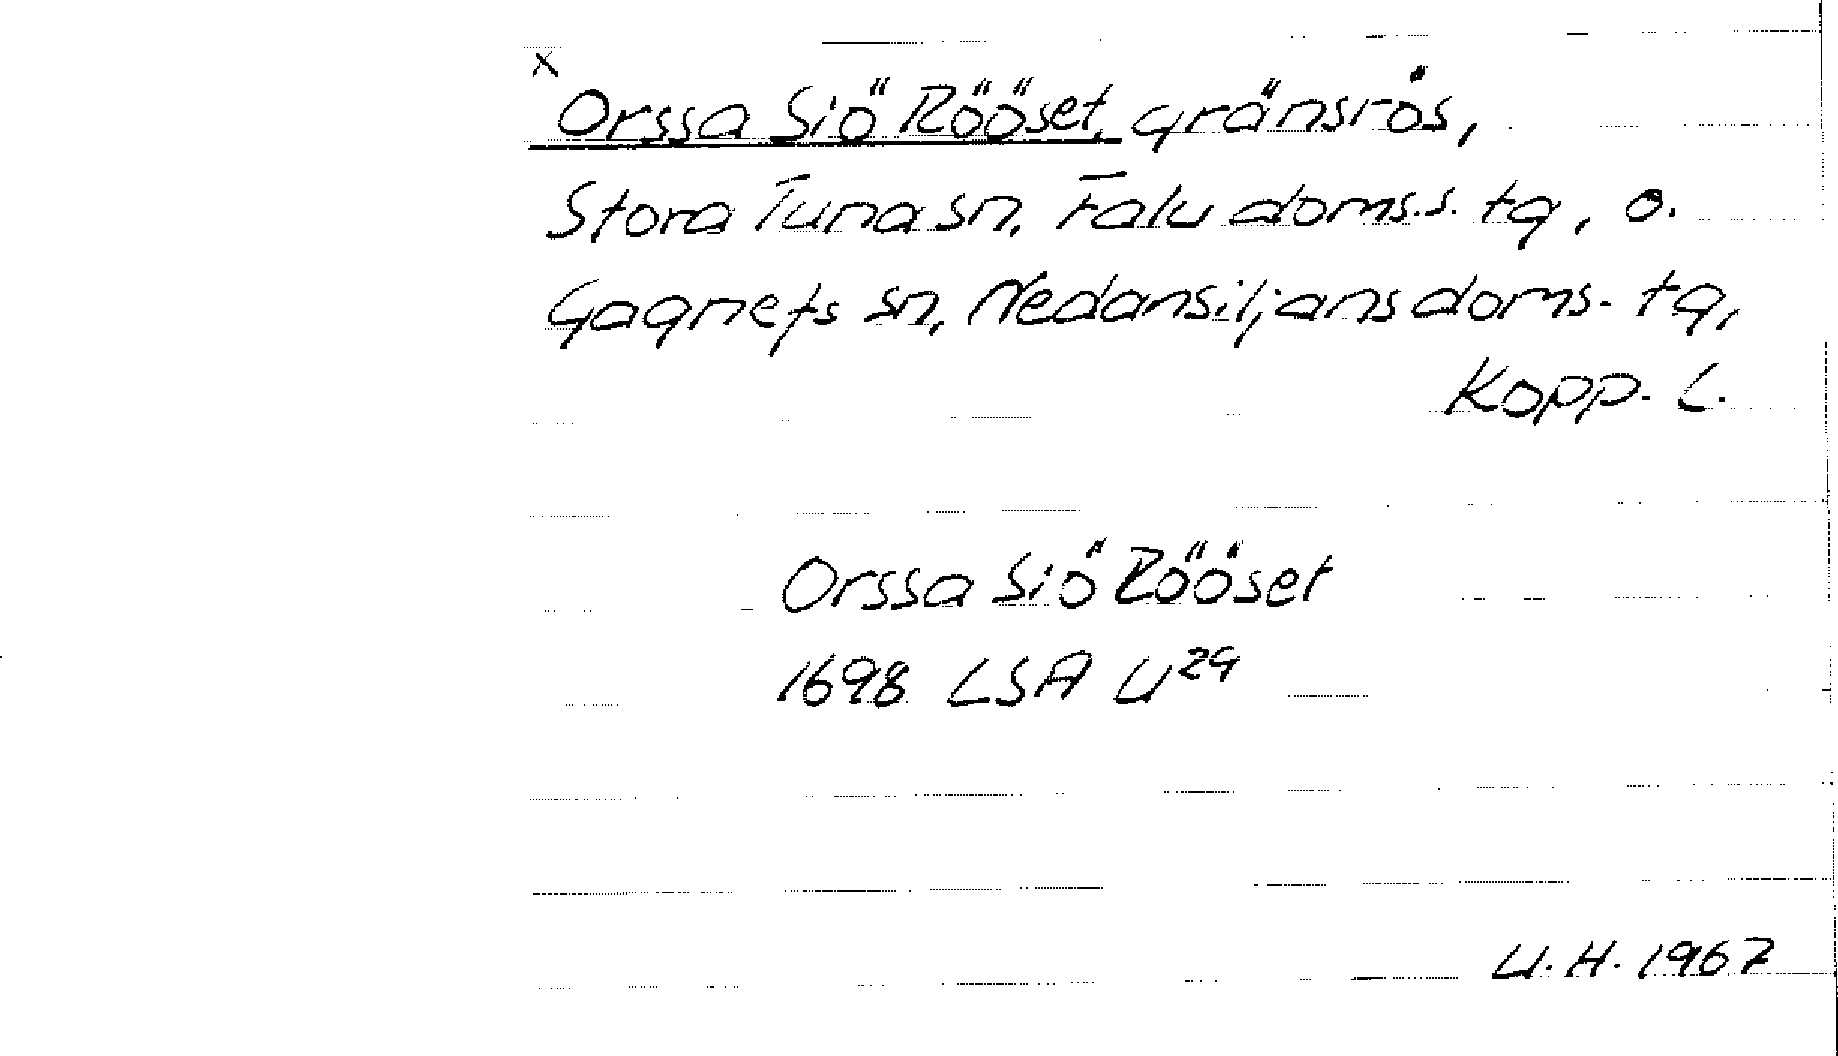 x
Orssa Siö Rööset, gränsrös,
Stora Tuna sn, Falu doms.s. tg, o.
Gagnefs sn, Nedansiljans doms. tg,
Kopp. L.
Orssa Siö Rööset
1698 LSA U²⁹
U.H. 1967